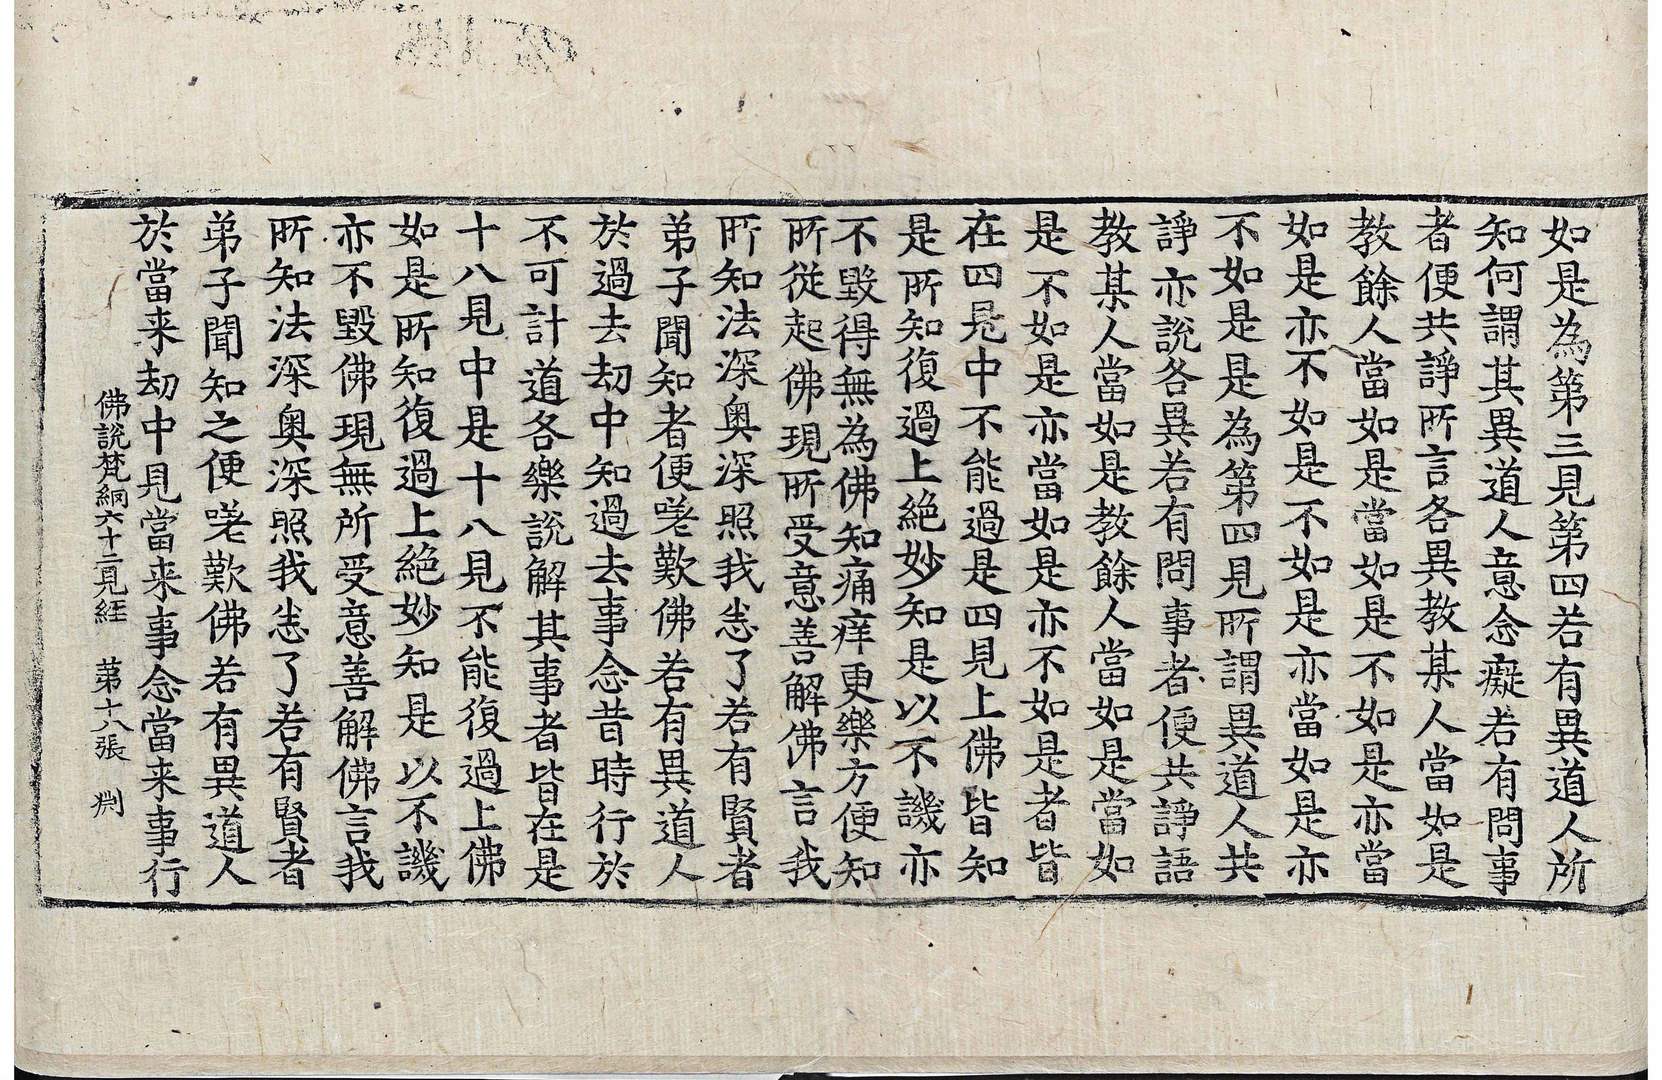 如是為第三見第四若有異道人所
知何謂其異道人意念癡若有問事
者便共諍所言各異教某人當如是
教餘人當如是當如是不如是亦當
如是亦不如是不如是亦當如是亦
不如是是為第四見所謂異道人共
諍亦說各異若有問事者便共諍語
教某人當如是教餘人當如是當如
是不如是亦當如是亦不如是者皆
在四見中不能過是四見上佛皆知
是所知復過上絕妙知是以不譏亦
不毀得無為佛知痛痒更樂方便知
所從起佛現所受意善解佛言我
所知法深奧深照我悉了若有賢者
弟子聞知者便嗟歎佛若有異道人
於過去劫中知過去事念昔時行於
不可計道各樂說解其事者皆在是
十八見中是十八見不能復過上佛
如是所知復過上絕妙知是以不譏
亦不毀佛現無所受意善解佛言我
所知法深奧深照我悉了若有賢者
弟子聞知之便嗟歎佛若有異道人
於當来劫中見當来事念當来事行
佛說梵網六十二見経 第十八張